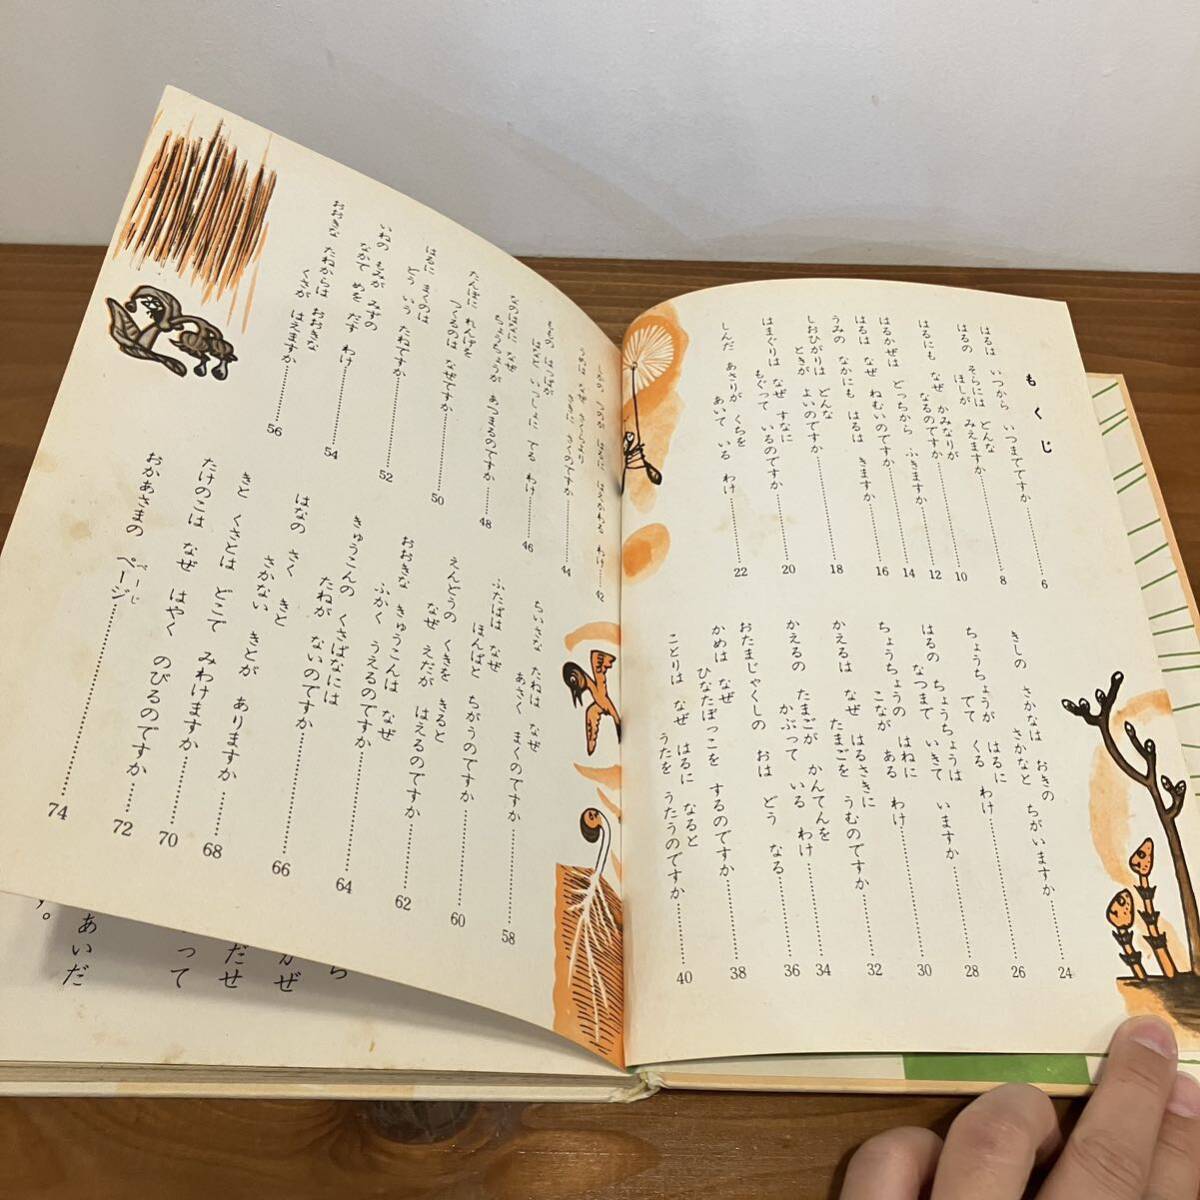 もくじ
はるは いつから いつまでですか……6
はるの そらには どんな
ほしが みえますか……8
はるにも なぜ かみなりが
なるのですか……10
はるかぜは どっちから ふきますか……12
はるは なぜ ねむいのですか……14
うみの なかにも はるは きますか……16
しおひがりは どんな
ときが よいのですか……18
はまぐりは なぜ すなに
もぐって いるのですか……20
しんだ あさりが くちを
あいて いる わけ……22
きしの さかなは おきの
さかなと ちがいますか……24
ちょうちょうが はるに
でて くる わけ……26
はるの ちょうちょうは
なつまで いきて いますか……28
ちょうちょうの はねに
こなが ある わけ……30
かえるは なぜ はるさきに
たまごを うむのですか……32
かえるの たまごが かんてんを
かぶって いる わけ……34
おたまじゃくしの おは どう なる……36
かめは なぜ
ひなたぼっこを するのですか……38
ことりは なぜ はるに なると
うたを うたうのですか……40
わけ……42
44
いっしょに でる わけ……46
なのはなに なぜ
ちょうちょうが あつまるのですか……48
たんぼに れんげを
つくるのは なぜですか……50
はるに まくのは
どう いう たねですか……52
いねの もみが みずの
なかで めを だす わけ……54
おおきな たねからは おおきな
くさが はえますか……56
ちいさな たねは なぜ
あさく まくのですか……58
ふたばは なぜ
ほんばと ちがうのですか……60
えんどうの くきを きると
なぜ えだが はえるのですか……62
おおきな きゅうこんは なぜ
ふかく うえるのですか……64
きゅうこんの くさばなには
たねが ないのですか……66
はなの さく きと
さかない きとが ありますか……68
きと くさとは どこで みわけますか……70
たけのこは なぜ はやく のびるのですか……72
おかあさまの ページ……74
ぺーじ
ら
かぜ
だせ
って
あいだ
す。